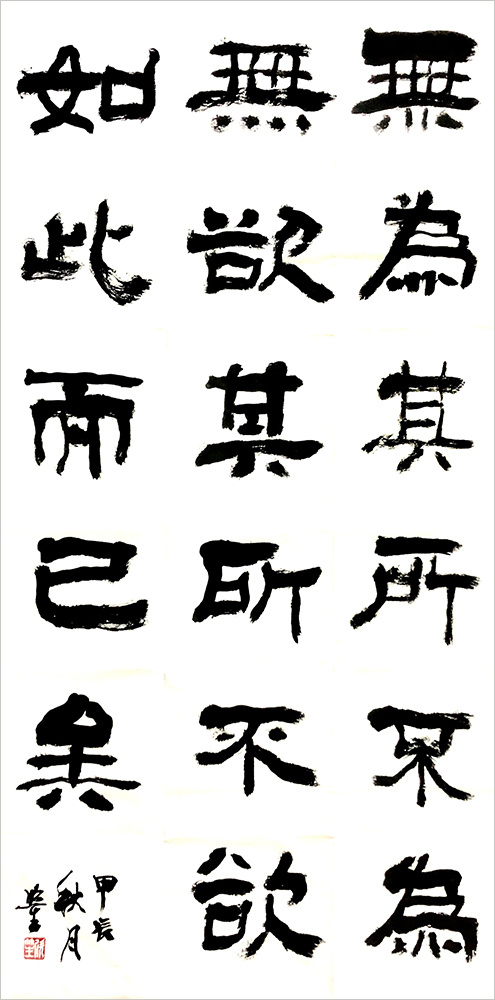 無為其所不為
無欲其所不欲
如此而已矣
甲辰
秋月